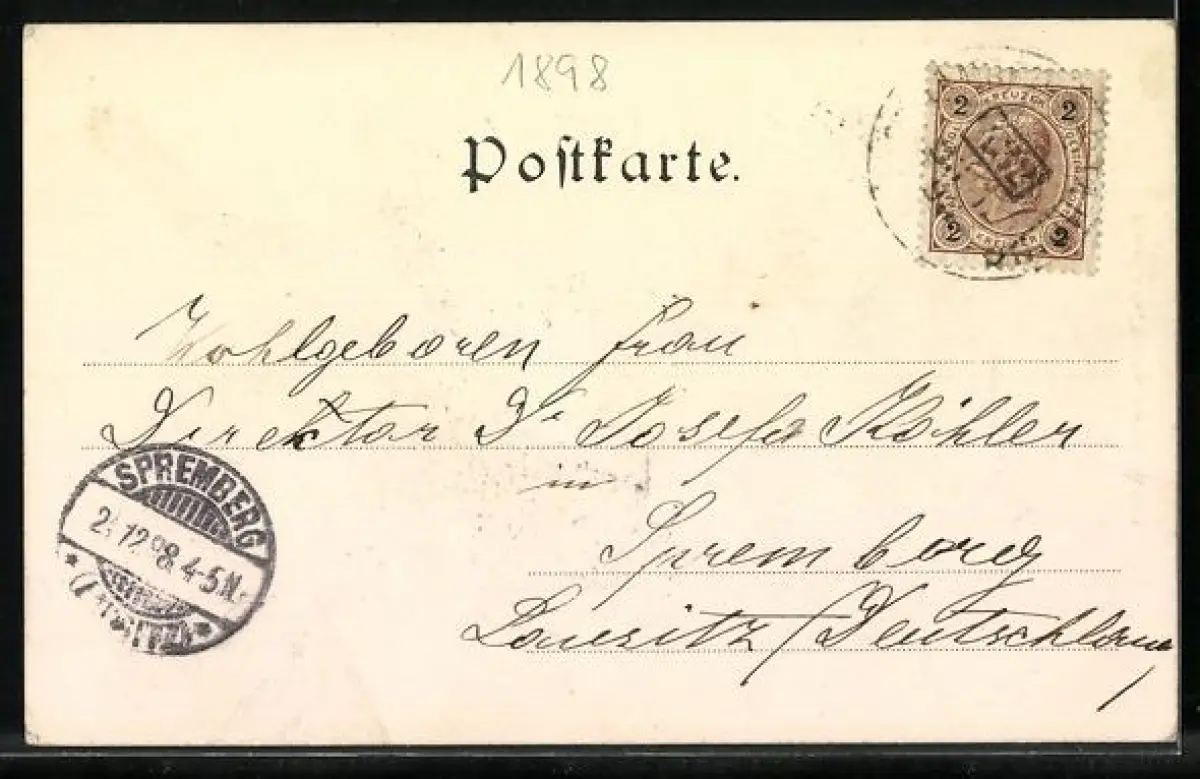 1898
Postkarte.
2 KREUZER 2
2 KREUZER 2
Wohlgeboren Frau
Direktor Dr Josefa Köhler
in
Spremberg
Lausitz (Deutschland)
SPREMBERG
12 98. 4-5N.
(LAUSITZ)